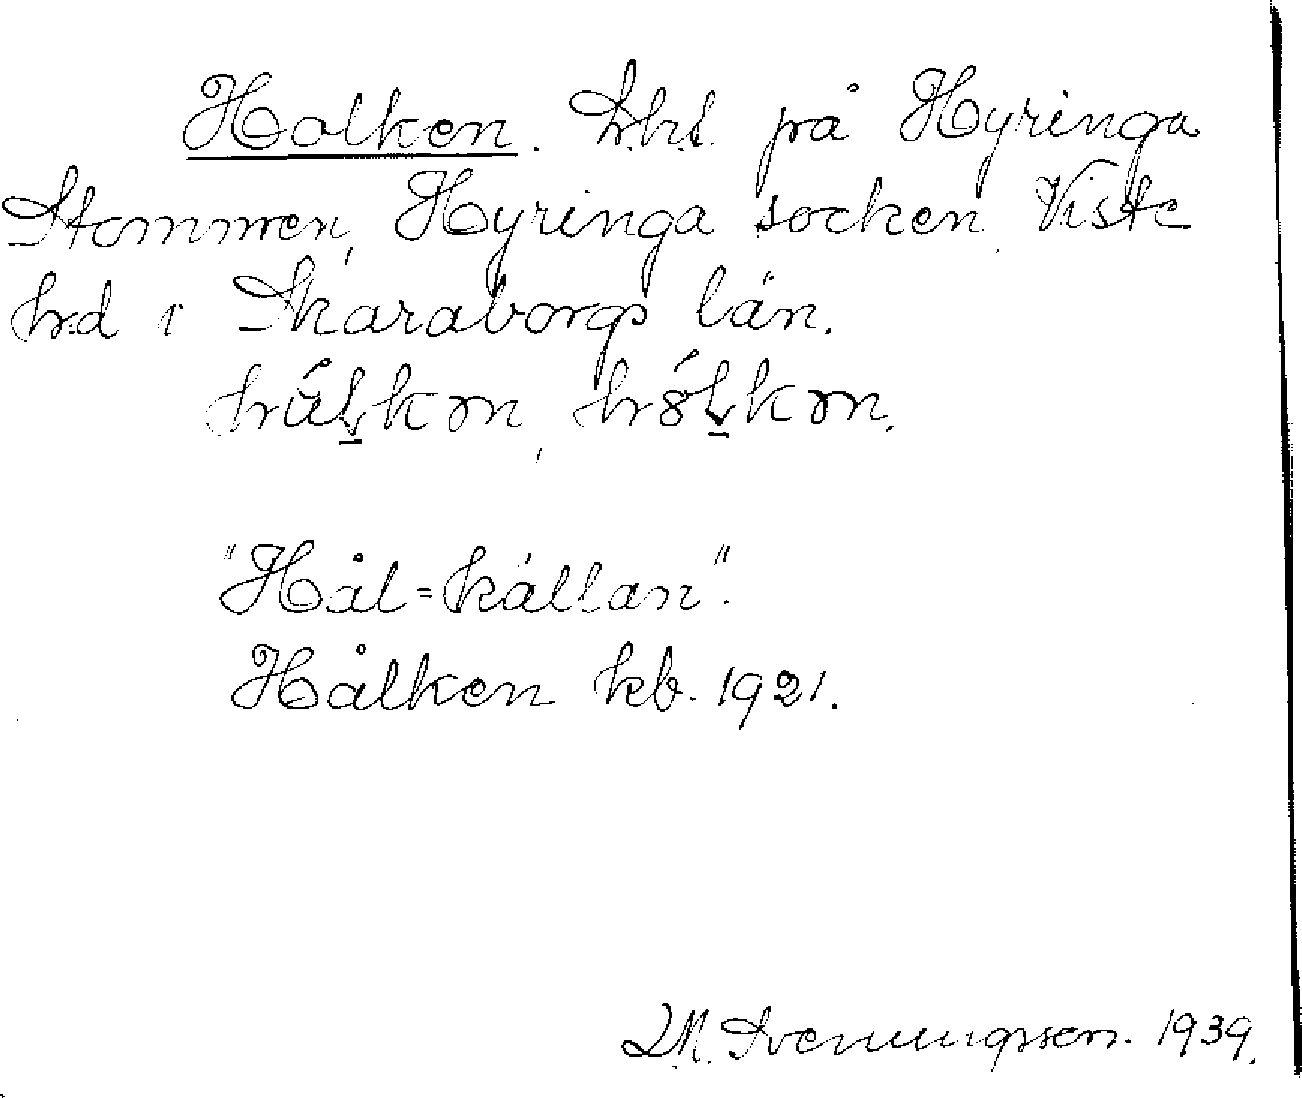 Holken. t.hs. på Hyringa
Stommen, Hyringa socken, Viste
hrd i Skaraborgs län.
"Hål=källan".
Hålken kb. 1921.
D.M. Svenungsson. 1939.